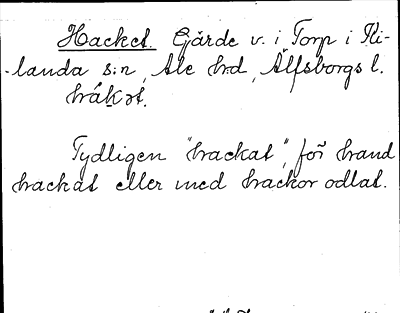 Hacket. Gärde v. i Torp i Ki-
landa s:n, Ale h:d, Älfsborgs l.
håk̯ət.
Tydligen "hackat", för hand
hackat eller med hackor odlat.